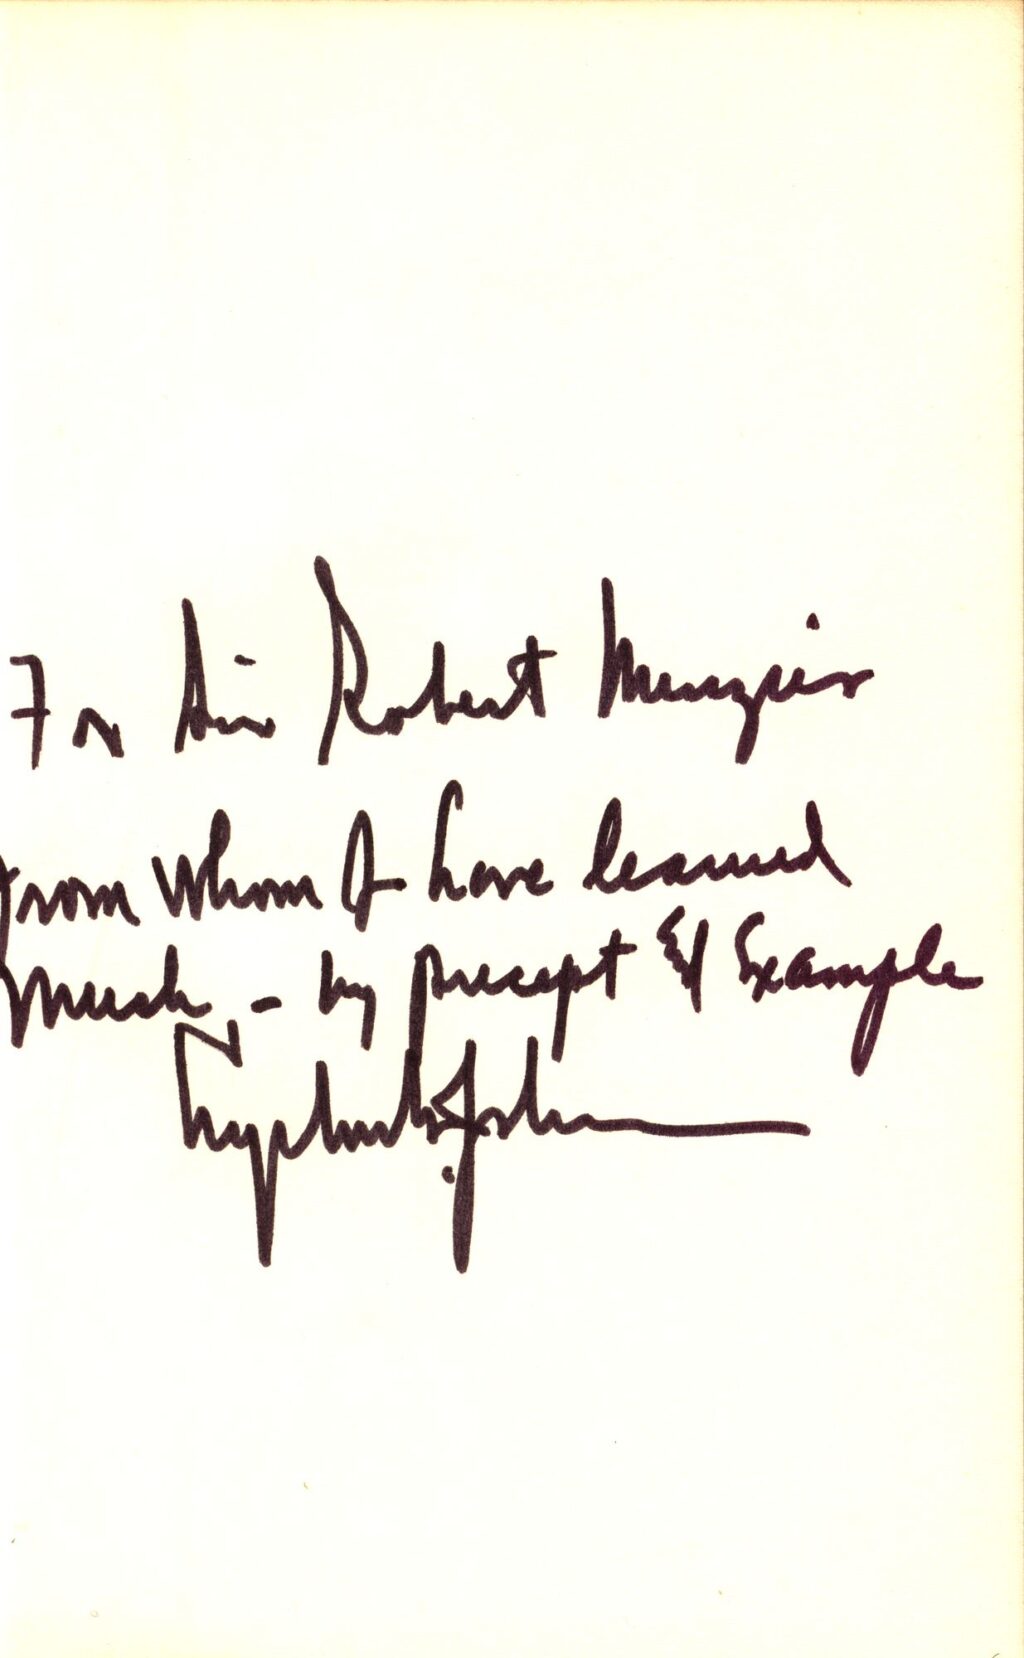 For Sir Robert Menzies
from whom I have learned
much - by precept & Example
Lyndon B. Johnson